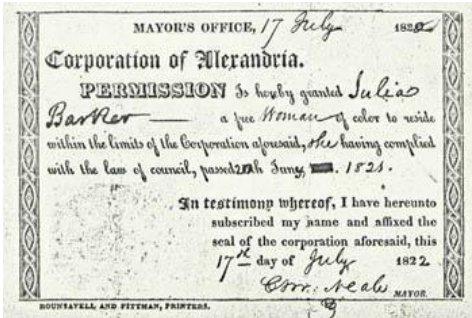 MAYOR'S OFFICE, 17 July 182
Corporation of Alexandria.
PERMISSION Is hereby granted Julia
Barker — a free Woman of color to reside
within the limits of the Corporation aforesaid, she having complied
with the law of council, passed June 1821.
In testimony whereof, I have hereunto
subscribed my name and affixed the
seal of the corporation aforesaid, this
17th day of July 1822
Neale
MAYOR.
ROUNSAVELL AND PITTMAN, PRINTERS.